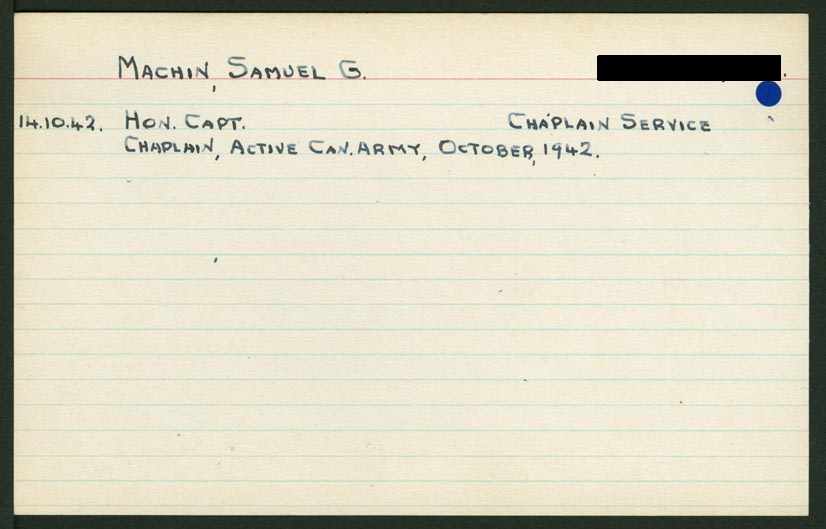 MACHIN, SAMUEL G.
14.10.42. HON. CAPT. CHAPLAIN SERVICE
CHAPLAIN, ACTIVE CAN. ARMY, OCTOBER, 1942.